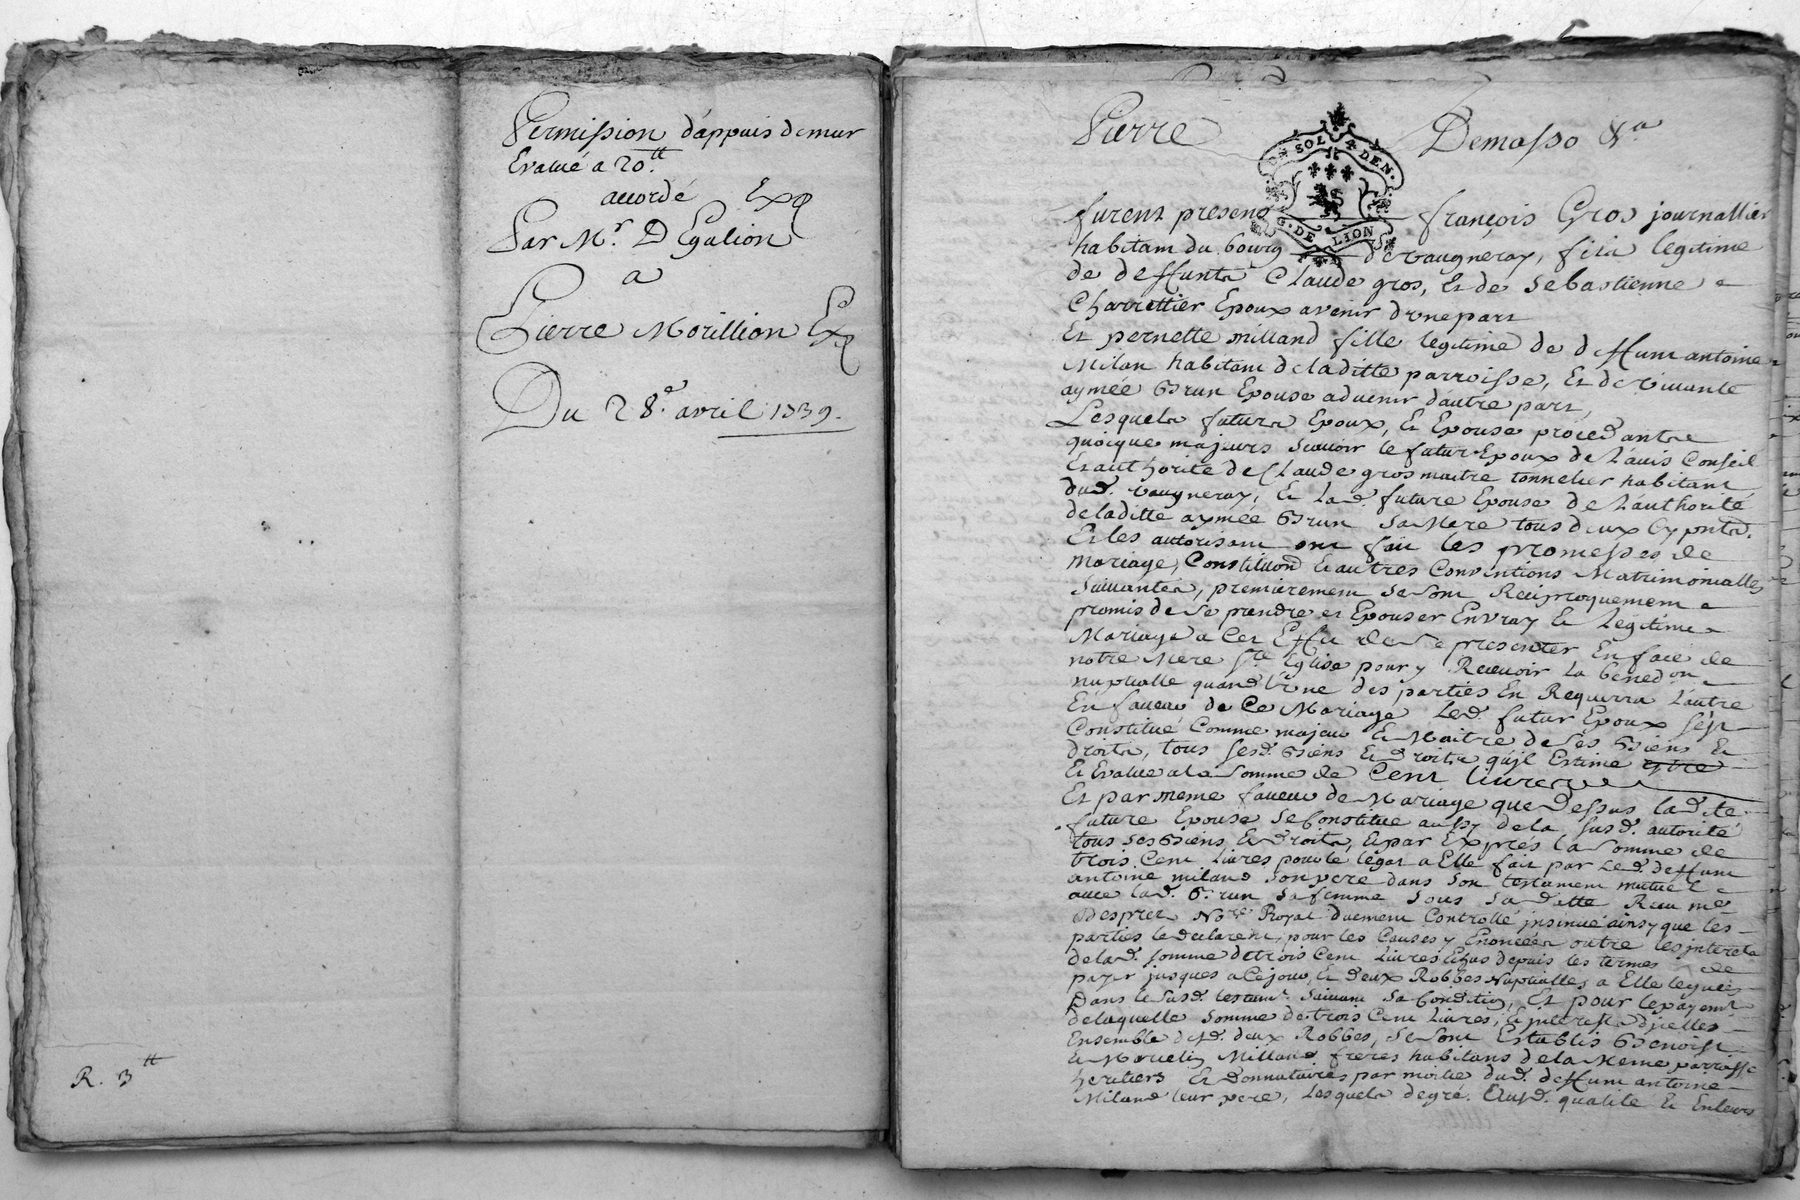 Permission d'appuis de mur
Evalué a 20.tt
accordé Exp
Par Mr. D Egalion
a
Pierre Morillion Exp
Du 28.e avril 1739.
R. 3tt
Pierre Demasso &a
DE SOL 4 DEN.
G. DE LION
furent presens françois Gros journallier
habitant du bourg de vaugneray, fils legitime
de deffunts Claude gros, Et de Sebastienne
Charrettier Epoux avenir d'une part
Et pernette milland fille legitime de deffunt antoine
Milan habitant de laditte parroisse, Et de vivante
aymée Brun Epouse advenir d'autre part,
Lesquels futurs Epoux, Et Epouse procedants
quoique majeurs scavoir le futur Epoux de L'auis Conseil
Et authorité de Claude gros maitre tonnelier habitant
dud. vaugneray, Et Lad. future Epouse de L'authorité
de laditte aymée Brun Sa Mere tous deux Cy pnts.
Et les autorisant ont fait les promesses de
Mariage, Constituon Et autres Conventions Matrimonialles
Suivantes, premierement se sont Reciproquement
promis de Se prendre et Epouser En vray Et Legitime
Mariage a Cet Effet de Se presenter En face de
notre Mere Ste Eglise pour y Recevoir La benedon
nuptialle quand L'une des parties En Requerra L'autre
En faveur de Ce Mariage Led. futur Epoux s'est
Constitué Comme majeur Et Maitre de Ses Biens Et
droits, tous sesd. Biens Et droits qu'il Estime
Et Evalue a la Somme de Cent livres
Et par meme faveur de Mariage que Dessus ladte
future Epouse Se Constitue aussy de la susd. autorité
tous ses Biens, Et droits, Et par Exprès la Somme de
trois Cent Livres pour le légat a Elle fait par Led. deffunt
antoine miland Son pere dans Son testament mutuel
avec lad. Brun Sa femme sous Sa datte Recu me
Desprez No.re Royal duement Controllé insinué ainsy que les
parties le declarent, pour les Causes y Enoncées outre les interets
de lad. somme de trois Cent Livres Echus depuis les termes de
payer jusques a Ce jour, Et deux Robbes Nuptialles a Elle leguées
Dans le Susd. testamt. Suivant Sa Condition, Et pour le payemt
de laquelle Somme de trois Cent Livres, Et interests d'icelles
Ensemble desd. deux Robbes, Se Sont Establis Benoist
Et Milland freres habitans de la Meme parroisse
heritiers Et donnataires par moitié dud. deffunt antoine
Miland leur pere, Lesquels de gré. Ausd. qualité Et En leurs